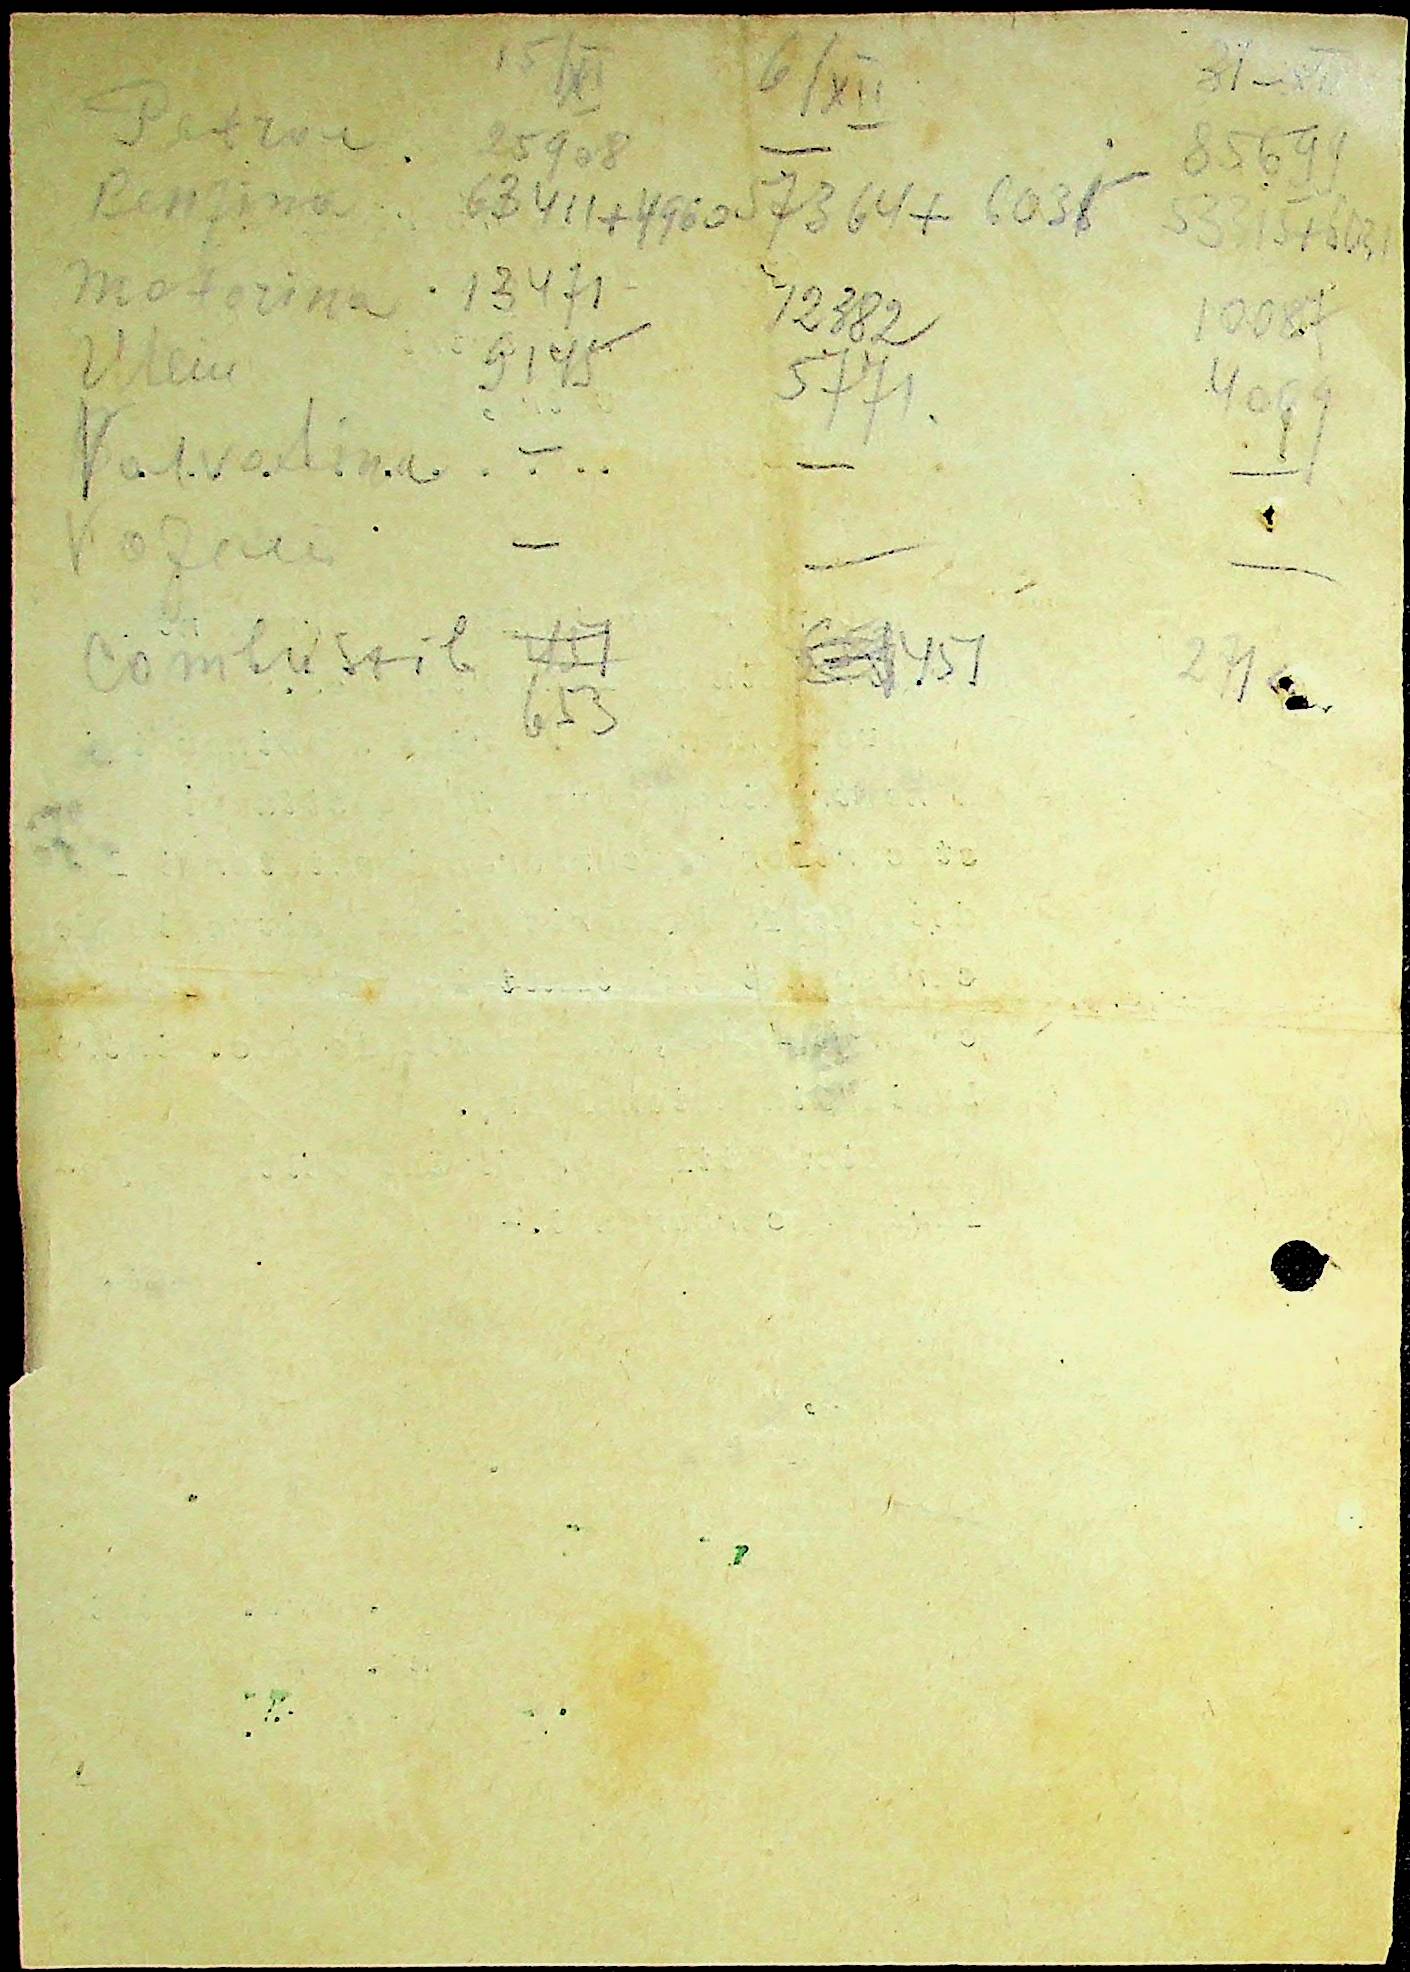 15/XI 6/XII 31-XII
Petrol. 25908 — 85699
Benzina 63411+4960 57364+ 6035 53315+
Motorina 13471 12382 10087
Uleiu 9145 5771 4069
Valvolina — — —
— — —
Combustib 451 451 271
653